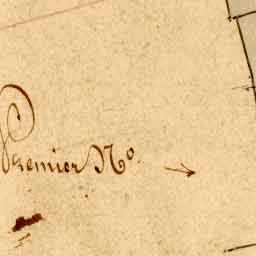 Premier No.